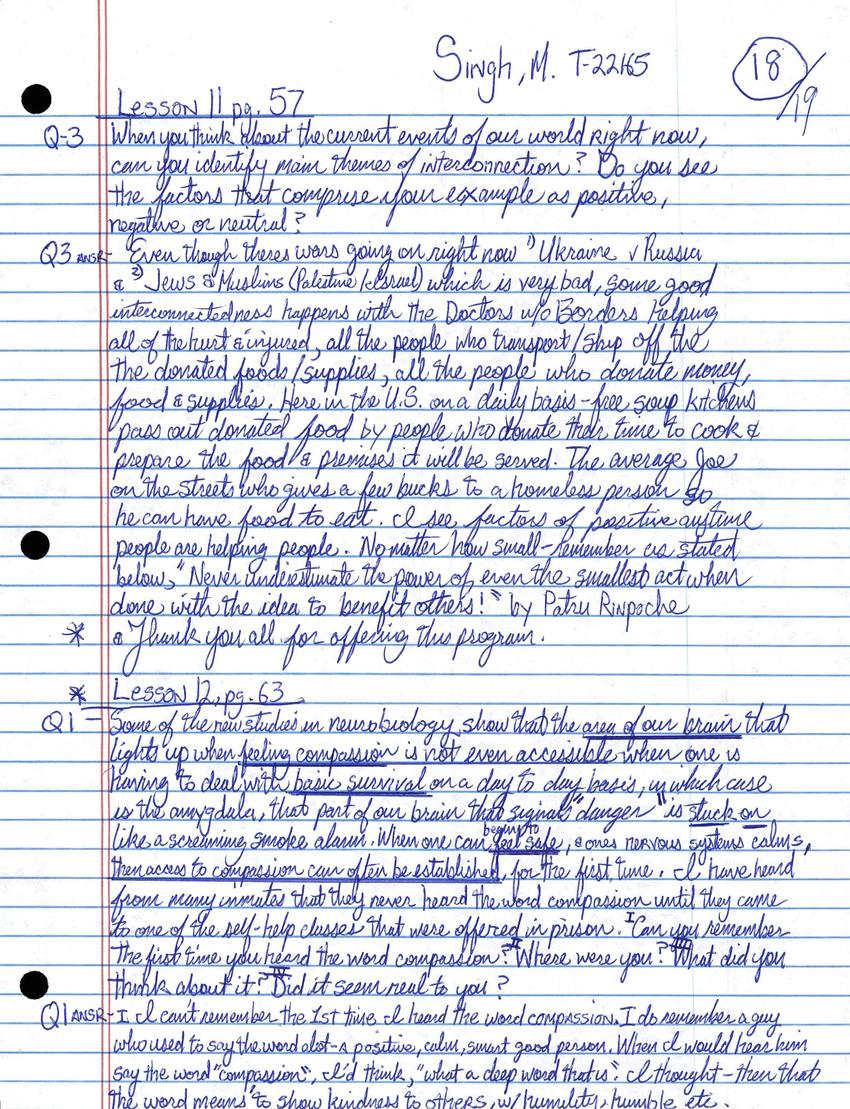 Singh, M. T-22165
18/19
Lesson 11 pg. 57
Q-3 When you think about the current events of our world right now,
can you identify main themes of interconnection? Do you see
the factors that comprise your example as positive,
negative or neutral?
Q3 ANSR- Even though theres wars going on right now 1) Ukraine v Russia
& 2) Jews & Muslims (Palestine / Israel) which is very bad, some good
interconnectedness happens with the Doctors w/o Borders Helping
all of the hurt & injured, all the people who transport/ship off the
the donated foods/supplies, all the people who donate money,
food & supplies. Here in the U.S. on a daily basis-free soup kitchens
pass out donated food by people who donate their time to cook &
prepare the food & premises it will be served. The average Joe
on the streets who gives a few bucks to a homeless person so
he can have food to eat. I see factors of positive anytime
people are helping people. No matter how small-remember as stated
below, "Never underestimate the power of even the smallest act when
done with the idea to benefit others!" by Patru Rinpoche
* & Thank you all for offering this program.
* Lesson 12, pg. 63
Q1 - Some of the new studies in neurobiology show that the area of our brain that
lights up when feeling compassion is not even accessible when one is
having to deal with basic survival on a day to day basis, in which case
is the amygdala, that part of our brain that signals "danger" is stuck on
like a screaming smoke alarm. When one can begin to feel safe, & ones nervous systems calms,
then access to compassion can often be established, for the first time. I have heard
from many inmates that they never heard the word compassion until they came
to one of the self-help classes that were offered in prison. I Can you remember
the first time you heard the word compassion? II Where were you? III What did you
think about it? IV Did it seem real to you?
Q1 ANSR- I. I can't remember the 1st time I heard the word compassion. I do remember a guy
who used to say the word alot-A positive, calm, smart good person. When I would hear him
say the word "compassion", I'd think, "what a deep word that is". I thought-then that
the word means "to show kindness to others, w/ humility, humble etc.